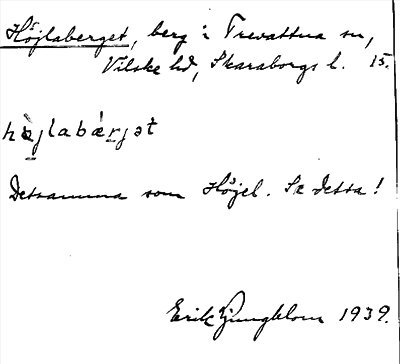 Höjlaberget, berg i Trevattna sn,
Vilske hd, Skaraborgs l. 15.
Detsamma som Höjel. Se detta!
Erik Ljungblom 1939.